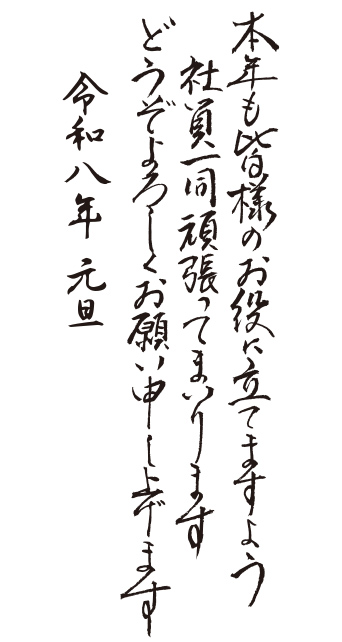 本年も皆様のお役に立てますよう
社員一同頑張ってまいります
どうぞよろしくお願い申し上げます
令和八年 元旦